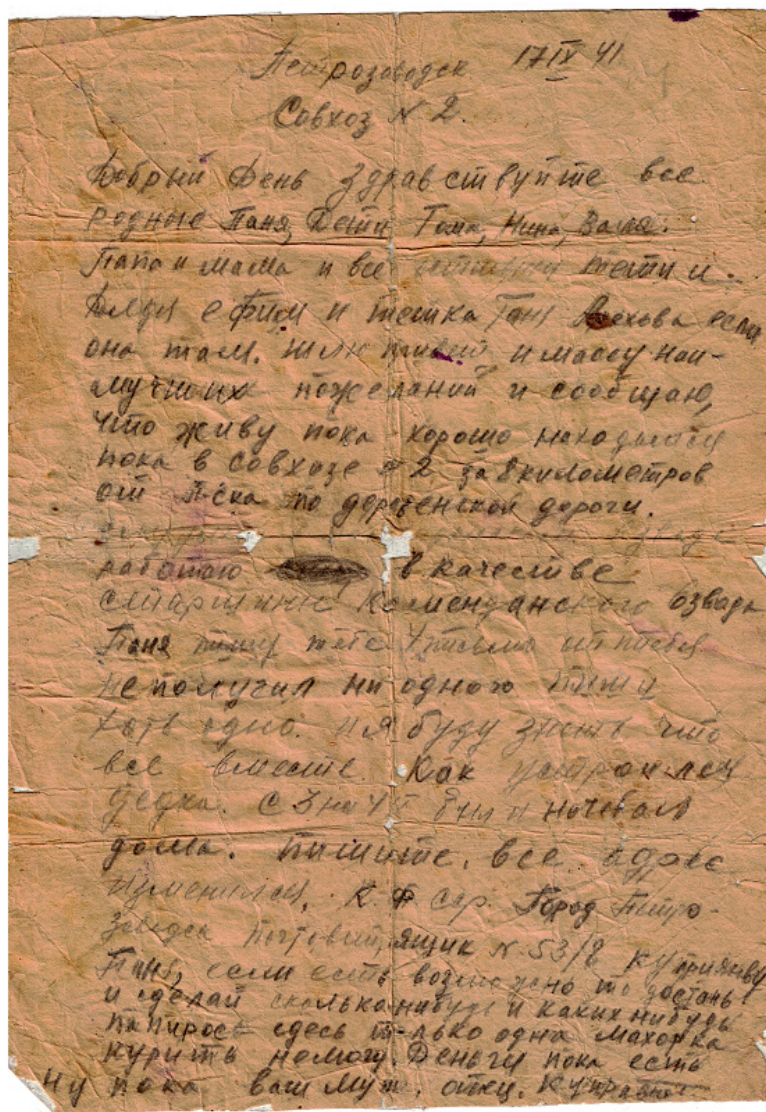 Петрозаводск 17 IX 41
Совхоз N 2.
Добрый День Здравствуйте все
родные Паня, Дети Тома, Нина, Валя.
Папа и мама и все тети и.
Дядя Ефим и тетка Таня если
она там. Шлю привет и массу наи-
лучших пожеланий и сообщаю,
что живу пока хорошо находимся
пока в совхозе N 2 за 8 километров
от П-ска по деревенской дороги.
работаю в качестве
старшины Комендансного взвода
Паня пишу тебе письмо от тебя
не получил ни одного пиши
хоть одно. и я буду знать что
все вместе. Как устроились
дедка. С 3 на 4 был и ночевал
дома. пишите. все адрес
изменился. К.Ф сср. Город Петро-
заводск почтовый ящик N. 53/8 Куприянову
Паня, если есть возможно то достань
и сделай сколька нибудь и каких нибудь
папирос сдесь только одна махорка
курить немогу. Деньги пока есть
Ну пока ваш муж. отец. Куприянов